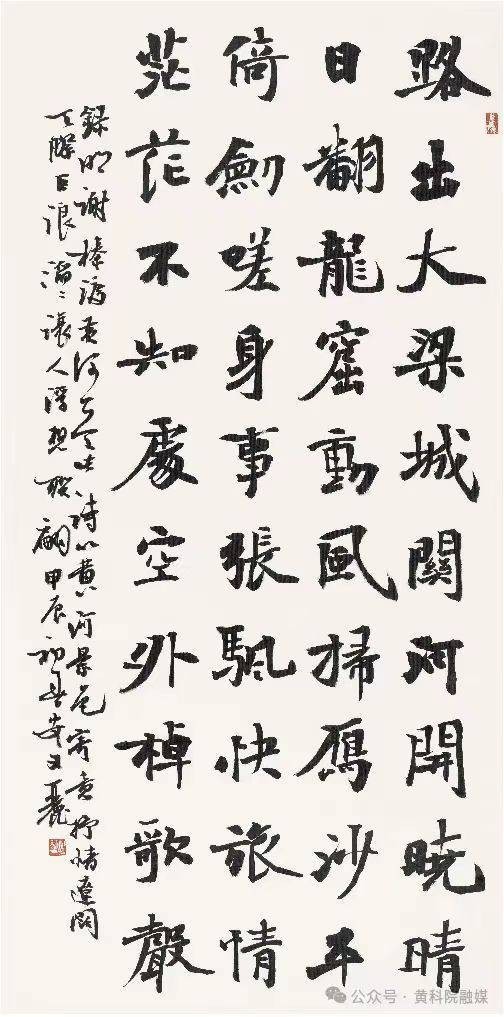 路出大梁城關河開曉晴
日翻龍窟動風掃雁沙平
倚劍嗟身事張颿快旅情
茫茫不知處空外棹歌聲
錄明謝榛渡黃河詩以黃河景色寄意抒情遼闊
天際巨浪滔滔讓人浮想聯翩甲辰初春
公众号·黄科院融媒